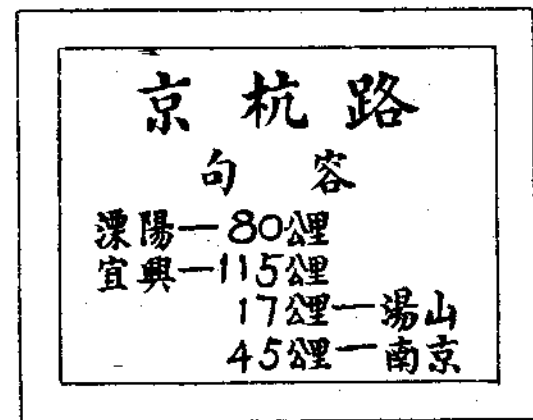 京杭路
句容
溧陽—80公里
宜興—115公里
17公里—湯山
45公里—南京